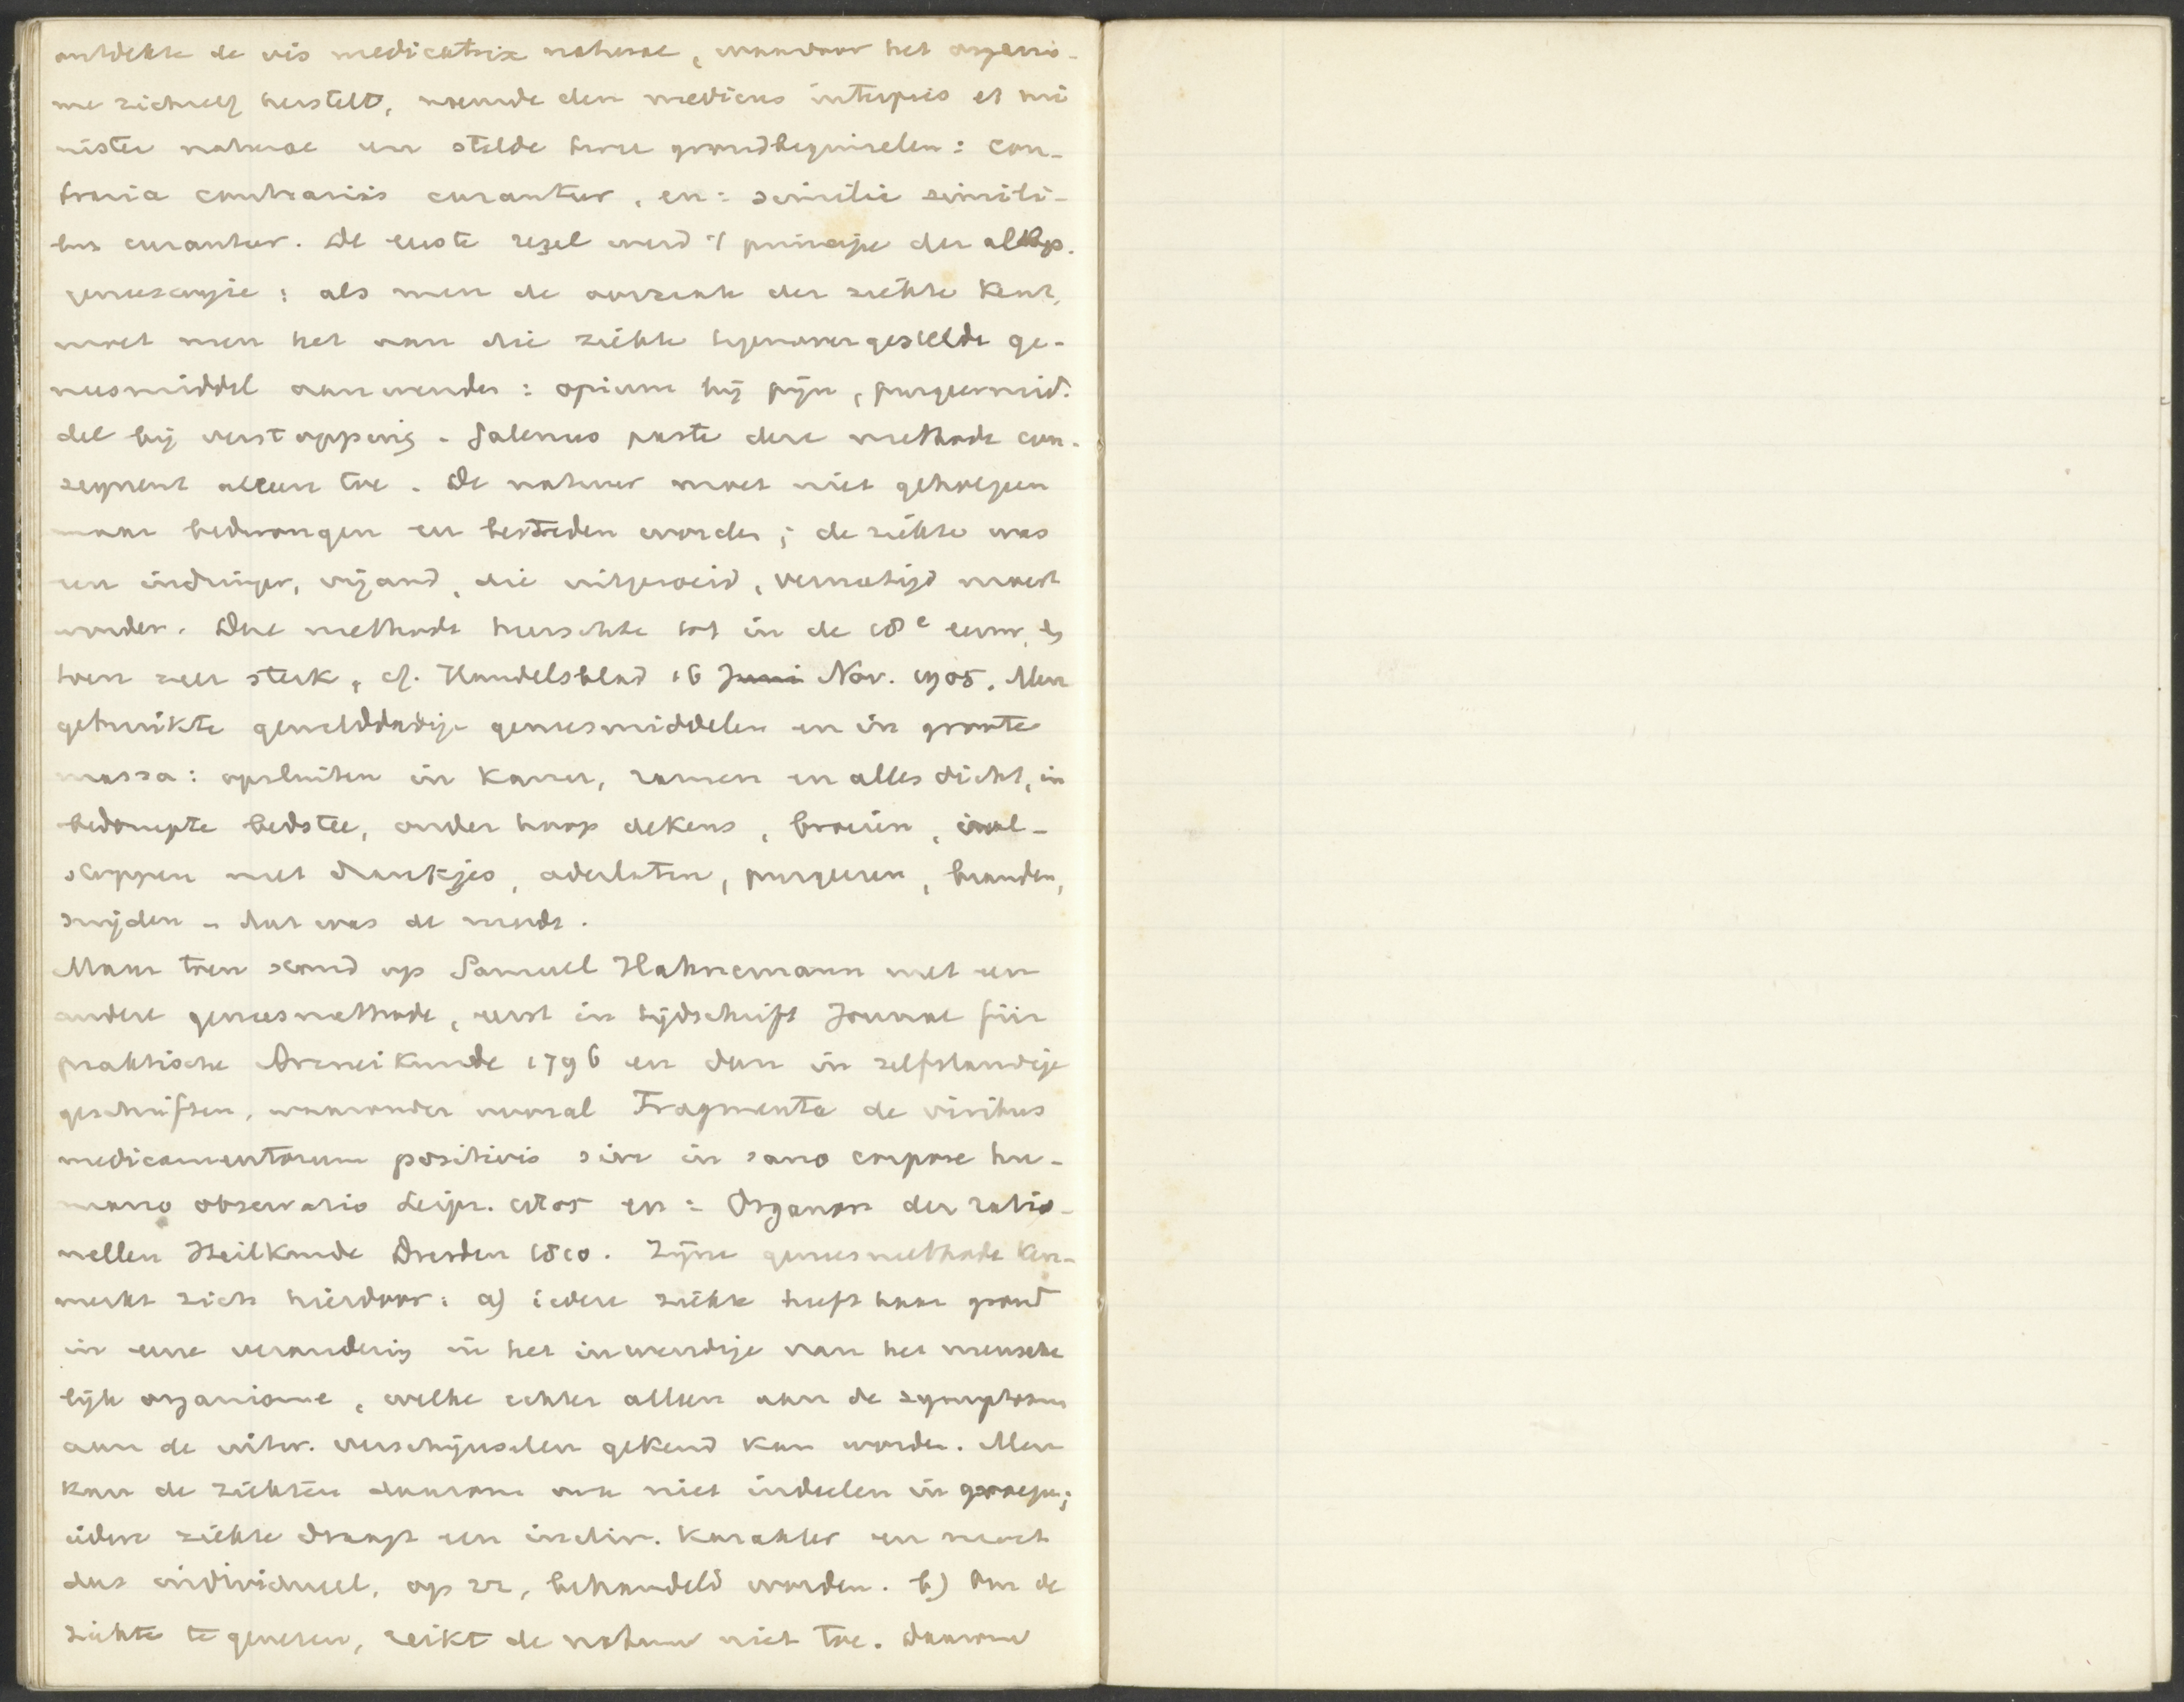 ontdekte de vis medicatrix naturae, waardoor het organis-
me zichzelf herstelt, noemde den medicus interpres et mi
nister naturae en stelde twee grondbeginselen: con-
traria contrariis curantur, en: similia simili-
bus curantur. De eerste regel werd 't principe der allop.
geneeswijze: als men de oorzaak der ziekte kent,
moet men het aan die ziekte tegenovergestelde ge-
neesmiddel aanwenden: opium bij pijn, purgeermid-
del bij verstopping. Galenus paste deze methode con-
sequent alleen toe. De natuur moet niet geholpen
maar bedwongen en bestreden worden; de ziekte was
een indringer, vijand, die uitgeroeid, vernietigd moest
worden. Deze methode heerschte tot in de 18e eeuw,
toen zeer sterk, cf. Handelsblad 16 Juni Nov. 1905. Men
gebruikte gewelddadige geneesmiddelen en in groote
massa: opsluiten in kamer, ramen en alles dicht, in
bedompte bedstee, onder hoop dekens, broeien, vol-
stoppen met drankjes, aderlaten, purgeeren, branden,
snijden - dat was de mode.
Maar toen stond op Samuel Hahnemann met een
andere geneesmethode, eerst in tijdschrift Journal für
praktische Arzneikunde 1796 en dan in zelfstandige
geschriften, waaronder vooral Fragmenta de viribus
medicamentorum positivis sive in sano corpore hu-
mano observatis Leipz. 1805 en: Organon der ratio-
nellen Heilkunde Dresden 1810. Zijne geneesmethode ken-
merkt zich hierdoor: a) iedere ziekte heeft haar grond
in eene verandering in het inwendige van het mensche
lijk organisme, welke echter alleen aan de symptomen
aan de uitw. verschijnselen gekend kan worden. Men
kan de ziekten daarom ook niet indeelen in groepen;
iedere ziekte draagt een indiv. karakter en moet
dus individueel, op zz, behandeld worden. b) Om de
ziekte te genezen, reikt de natuur niet toe. daarom